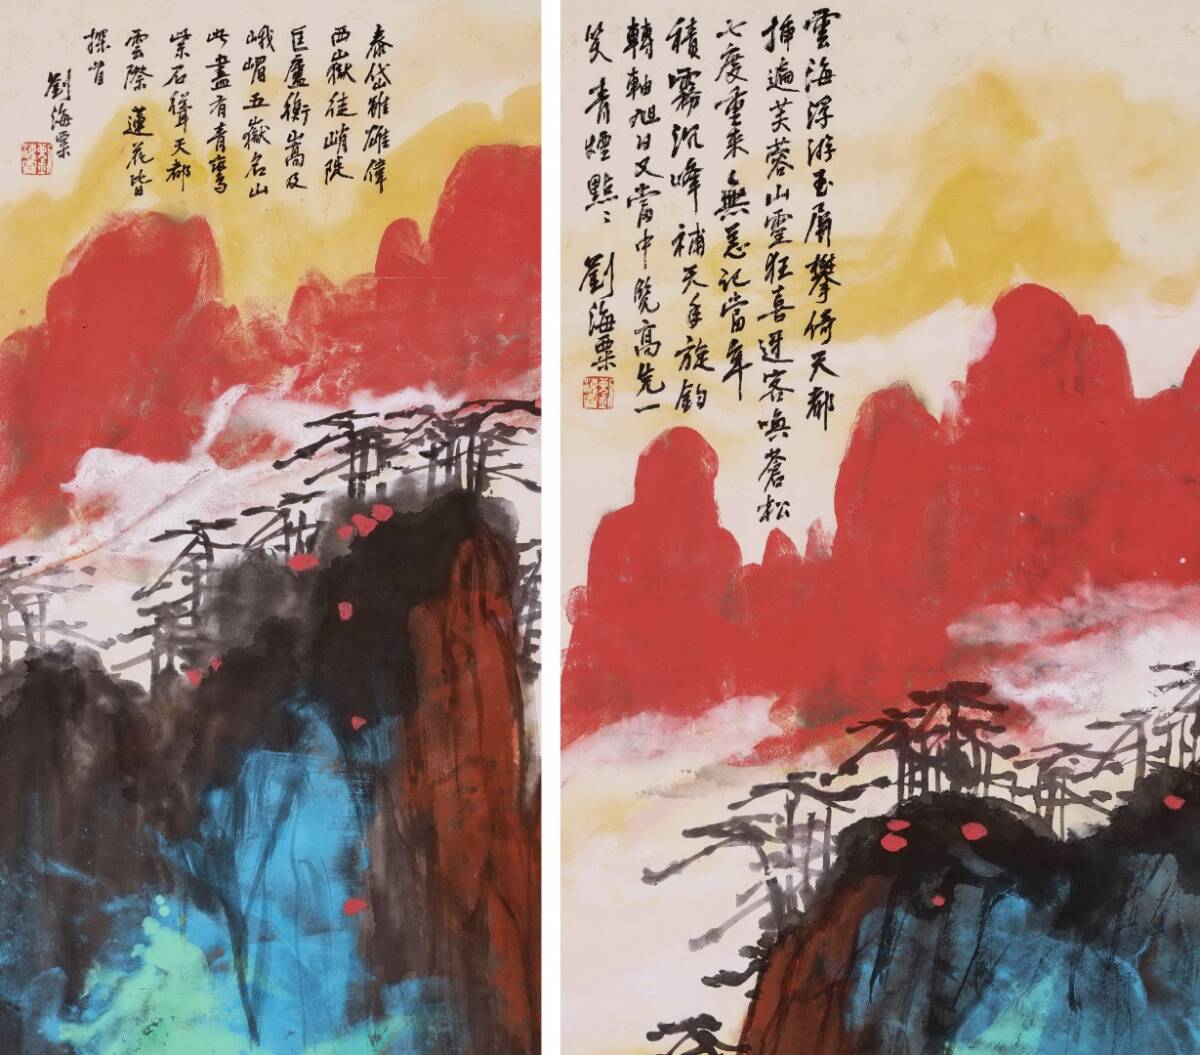 泰岱雖雄偉
西嶽徒峭陡
匡廬衡嵩及
峨嵋五嶽名山
此盡有青鸞
紫石聳天都
雲際蓮花皆
探首
劉海粟
雲海浮游玉屏攀倚天都
插遍芙蓉山靈狂喜迓客喚蒼松
七度重來無恙記當年
積霧沉峰補天手旋鈞
轉軸旭日又當中覽高先一
笑青煙點〻劉海粟